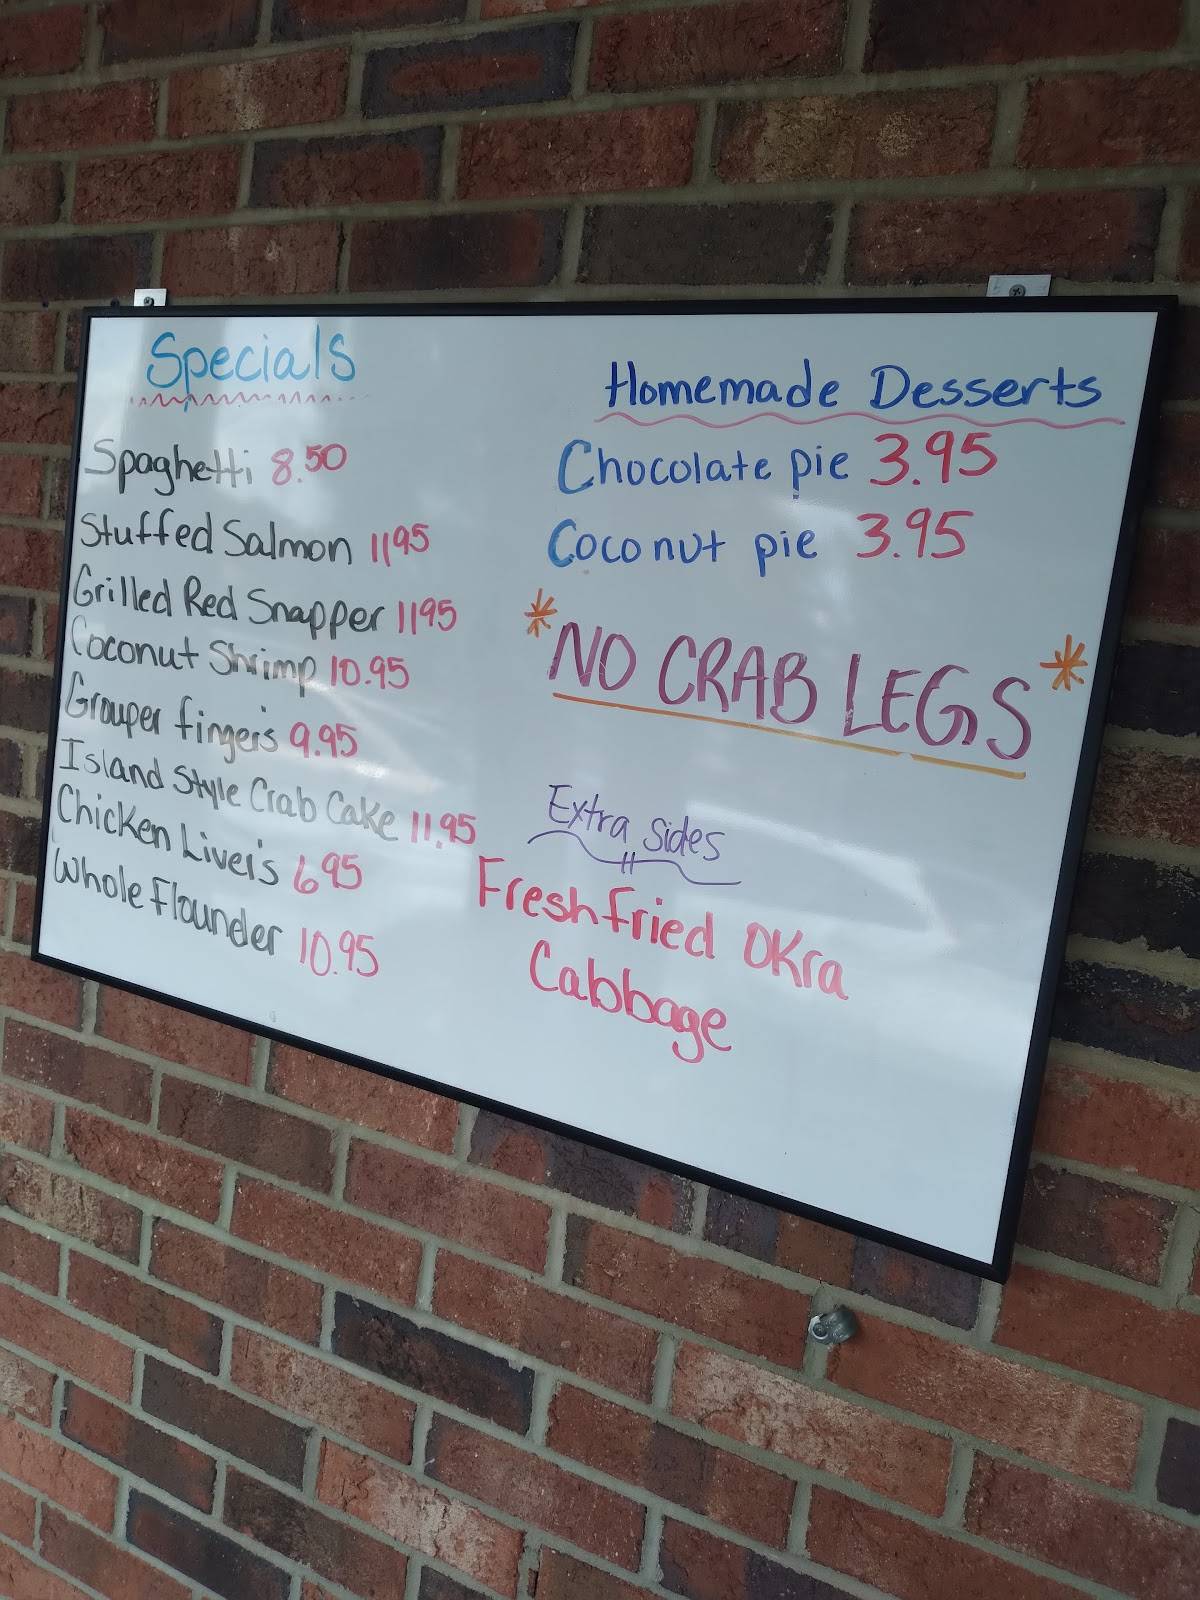 Specials
Spaghetti 8.50
Stuffed Salmon 1195
Grilled Red Snapper 1195
Coconut Shrimp 10.95
Grouper finger's 9.95
Island Style Crab Cake 11.95
Chicken Liver's 6.95
Whole Flounder 10.95
Homemade Desserts
Chocolate pie 3.95
Coconut pie 3.95
*NO CRAB LEGS*
Extra sides
Fresh fried OKra
Cabbage